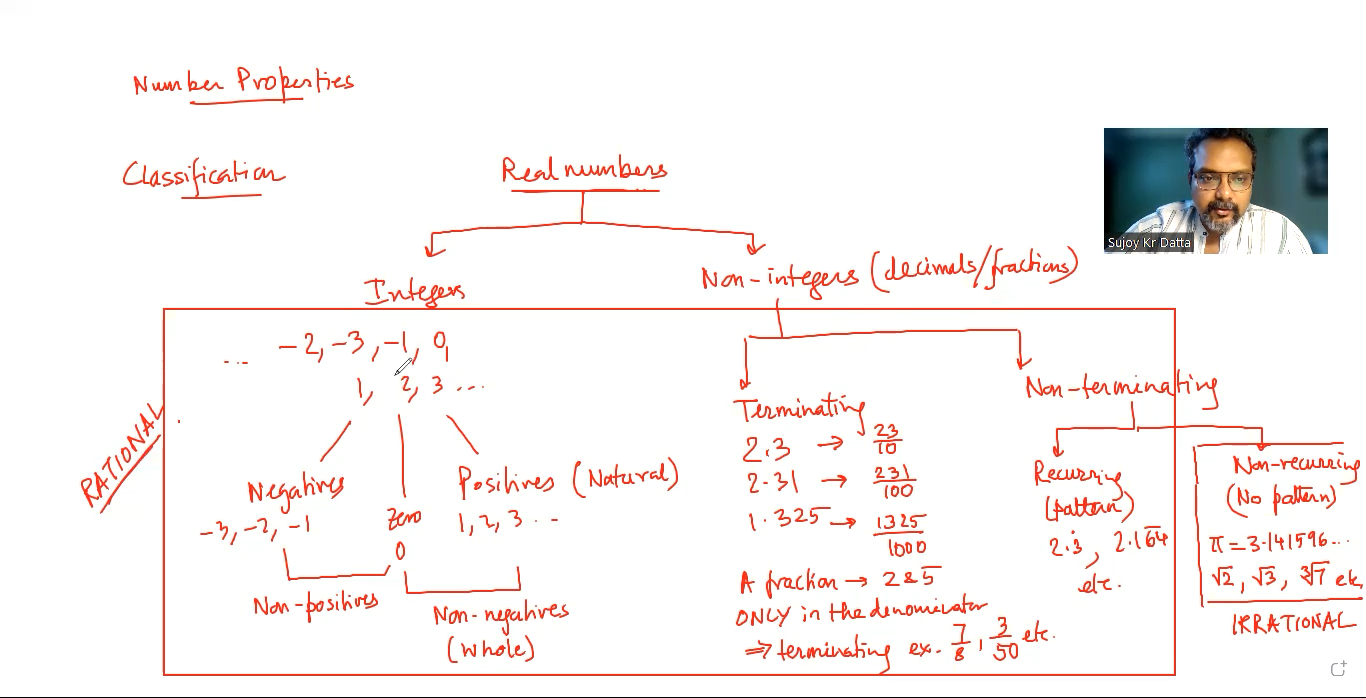 Number Properties
Classification
Real numbers
Sujoy Kr Datta
Integers
Non-integers (decimals/fractions)
... -2, -3, -1, 0,
1, 2, 3 ...
RATIONAL
Negatives
-3, -2, -1
Zero
0
Positives (Natural)
1, 2, 3 ...
Non-positives
Non-negatives
(Whole)
Terminating
2.3 → 23/10
2.31 → 231/100
1.325 → 1325/1000
A fraction → 2 & 5
ONLY in the denominator
⇒ terminating ex. 7/8, 3/50 etc.
Non-terminating
Recurring
(pattern)
2.3̇, 2.16̅4̅
etc.
Non-recurring
(No pattern)
π = 3.141596...
√2, √3, ∛7 etc
IRRATIONAL